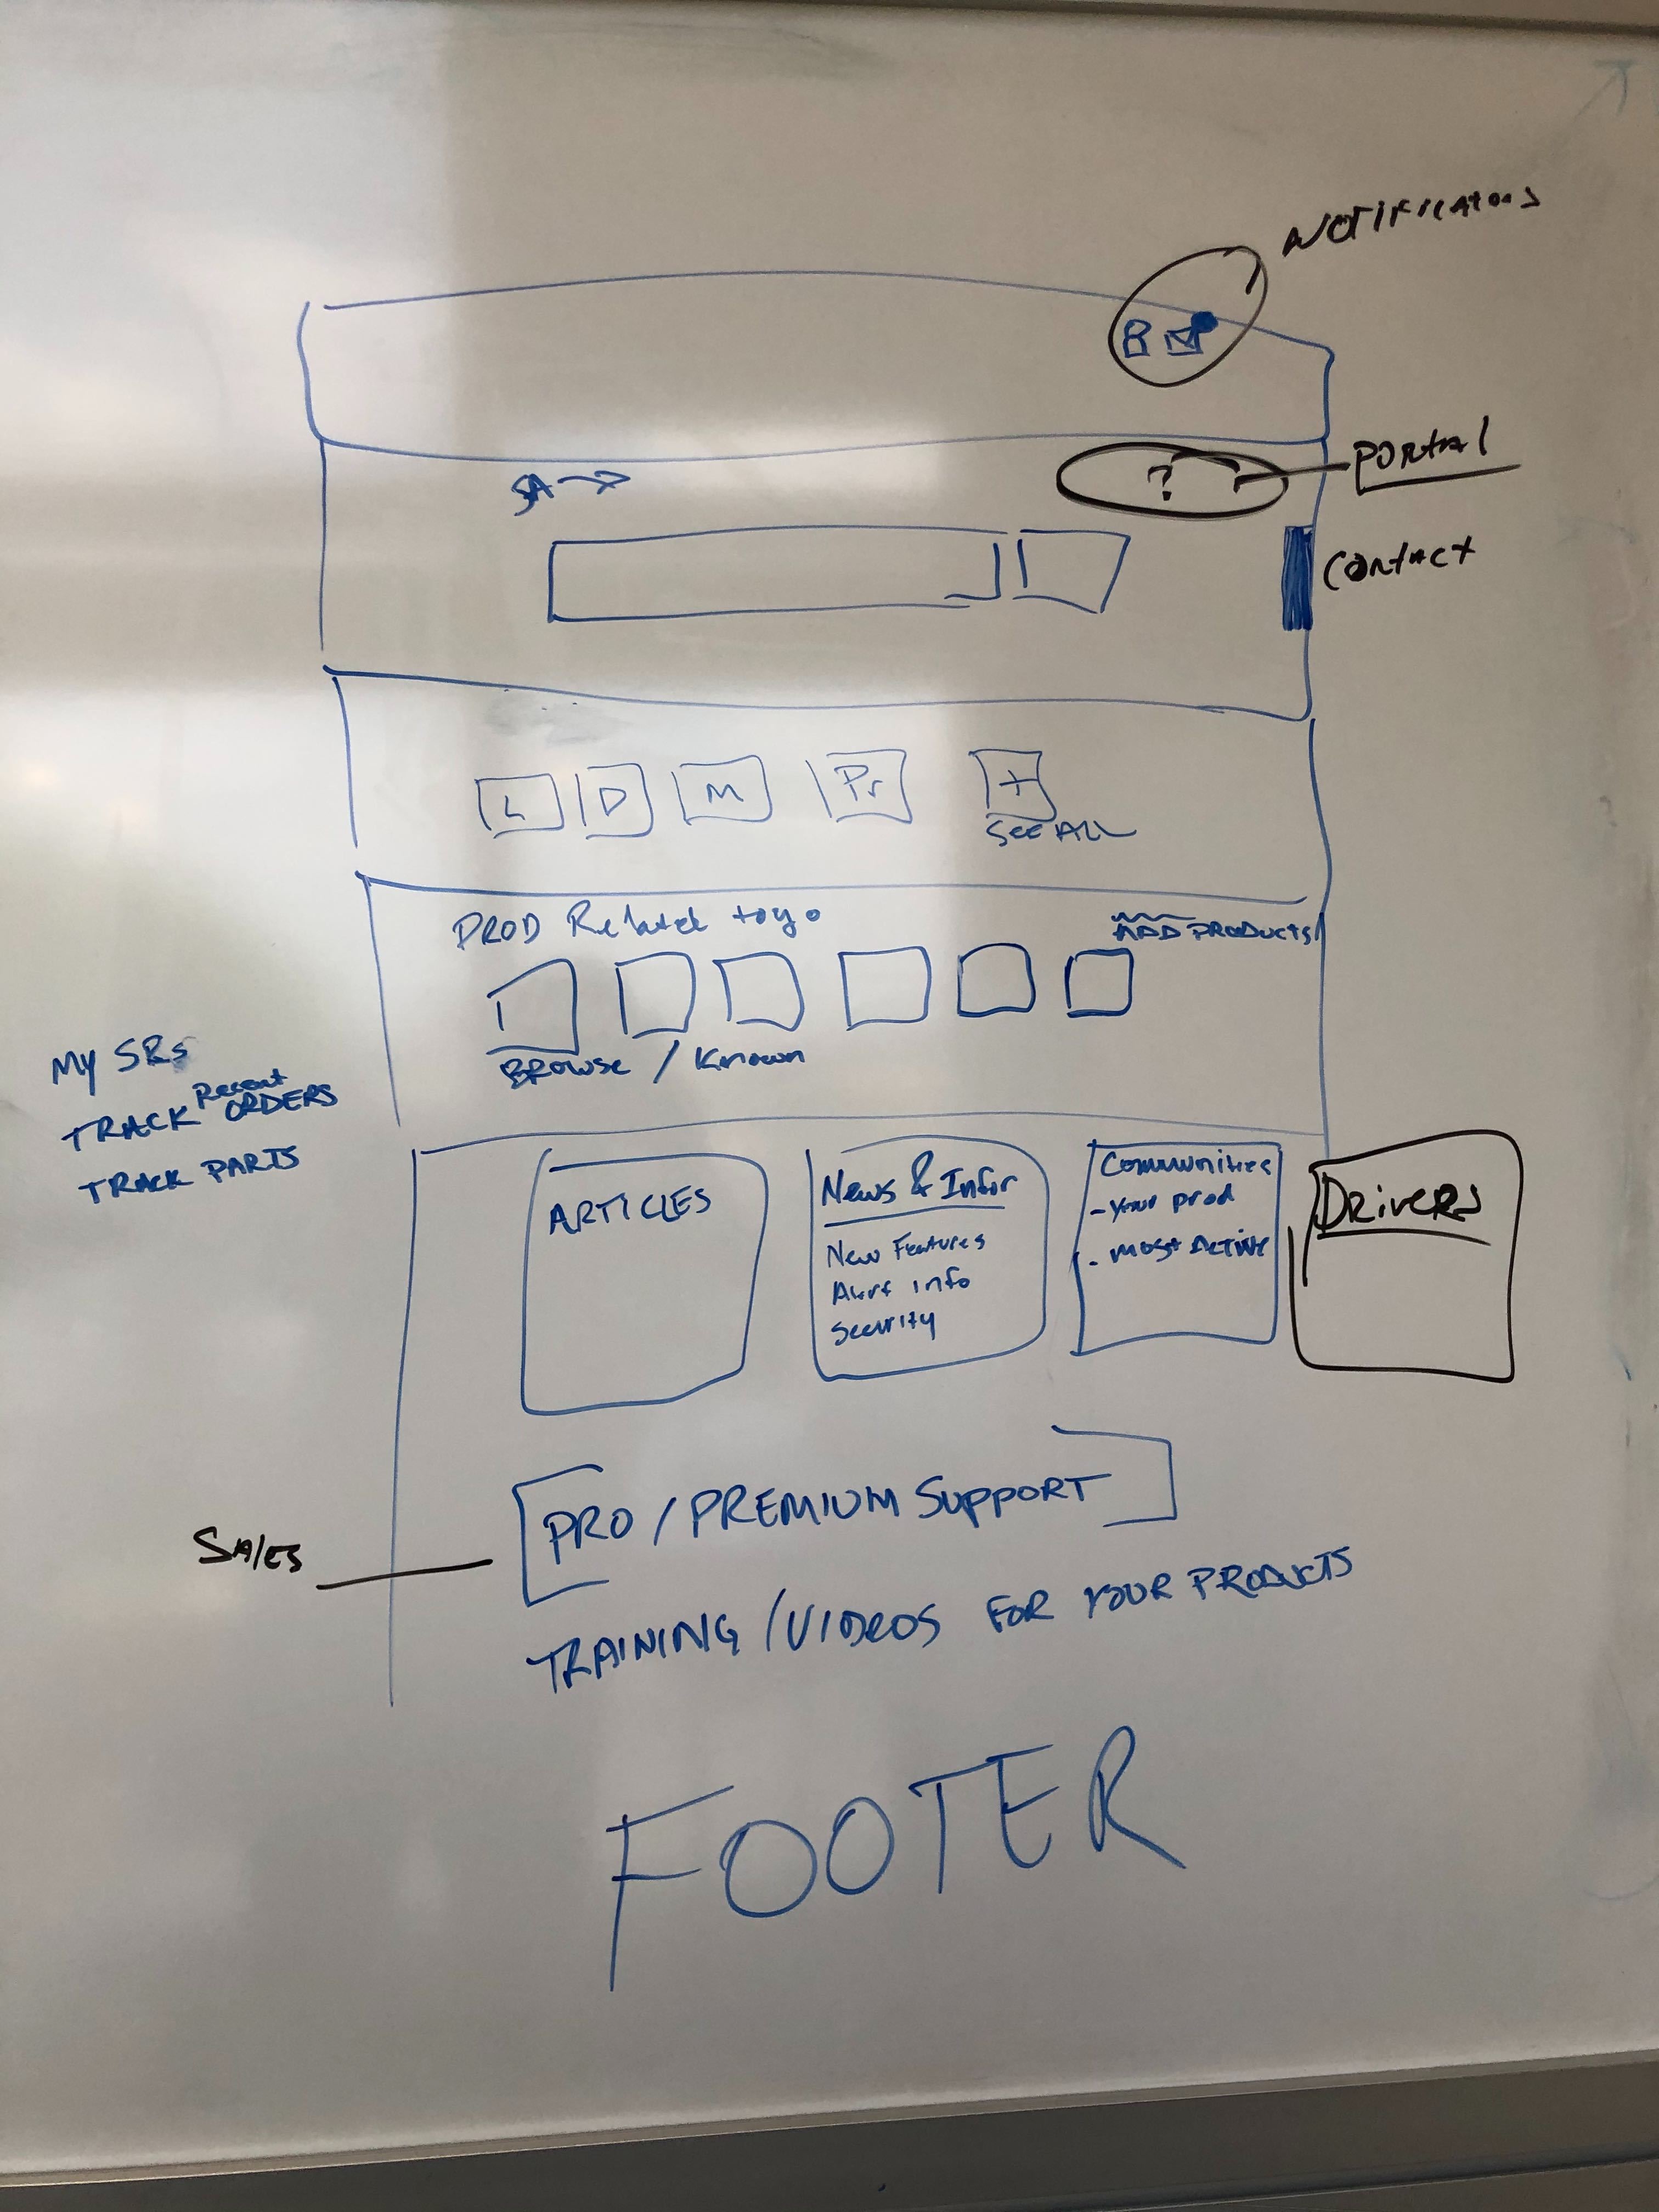 NOTIFICATIONS
?
PORTAL
SA →
CONTACT
L D M Pr +
SEE ALL
PROD Related to yo
ADD PRODUCTS
BROWSE / Known
MY SRs
TRACK Recent ORDERS
TRACK PARTS
ARTICLES
News & Infor
New Features
Alert info
Security
Communities
- your prod
- most Active
DRIVERS
PRO / PREMIUM SUPPORT
SALES
TRAINING / VIDEOS FOR YOUR PRODUCTS
FOOTER